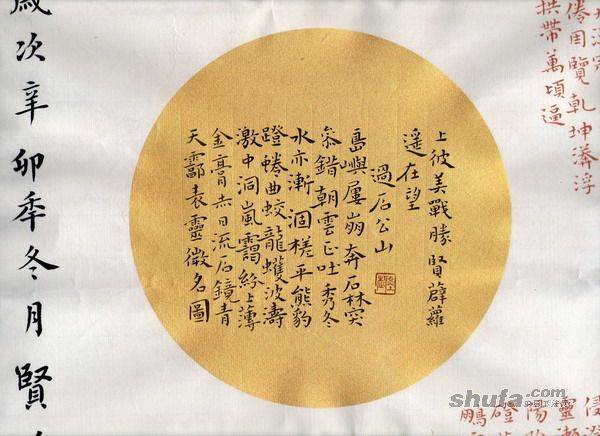 倦因覽乾坤漭浮
拱帶萬頃逼
上彼美戰勝賢薜蘿
遥在望
過石公山
島嶼屢崩奔石林突
叅錯朝雲正吐秀冬
水亦漸涸槎平熊豹
蹬蜷曲蛟龍蠖波濤
激中洞嵐靄紛上薄
金膏赤日流石鏡青
天霩表靈徵名圖
歲次辛卯秊冬月賢
shufa.com